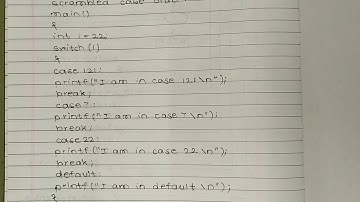 scrambled case
main()
{
int i = 22;
switch (i)
{
case 121:
printf("I am in case 121\n");
break;
case 7:
printf("I am in case 7\n");
break;
case 22:
printf("I am in case 22\n");
break;
default:
printf("I am in default\n");
}